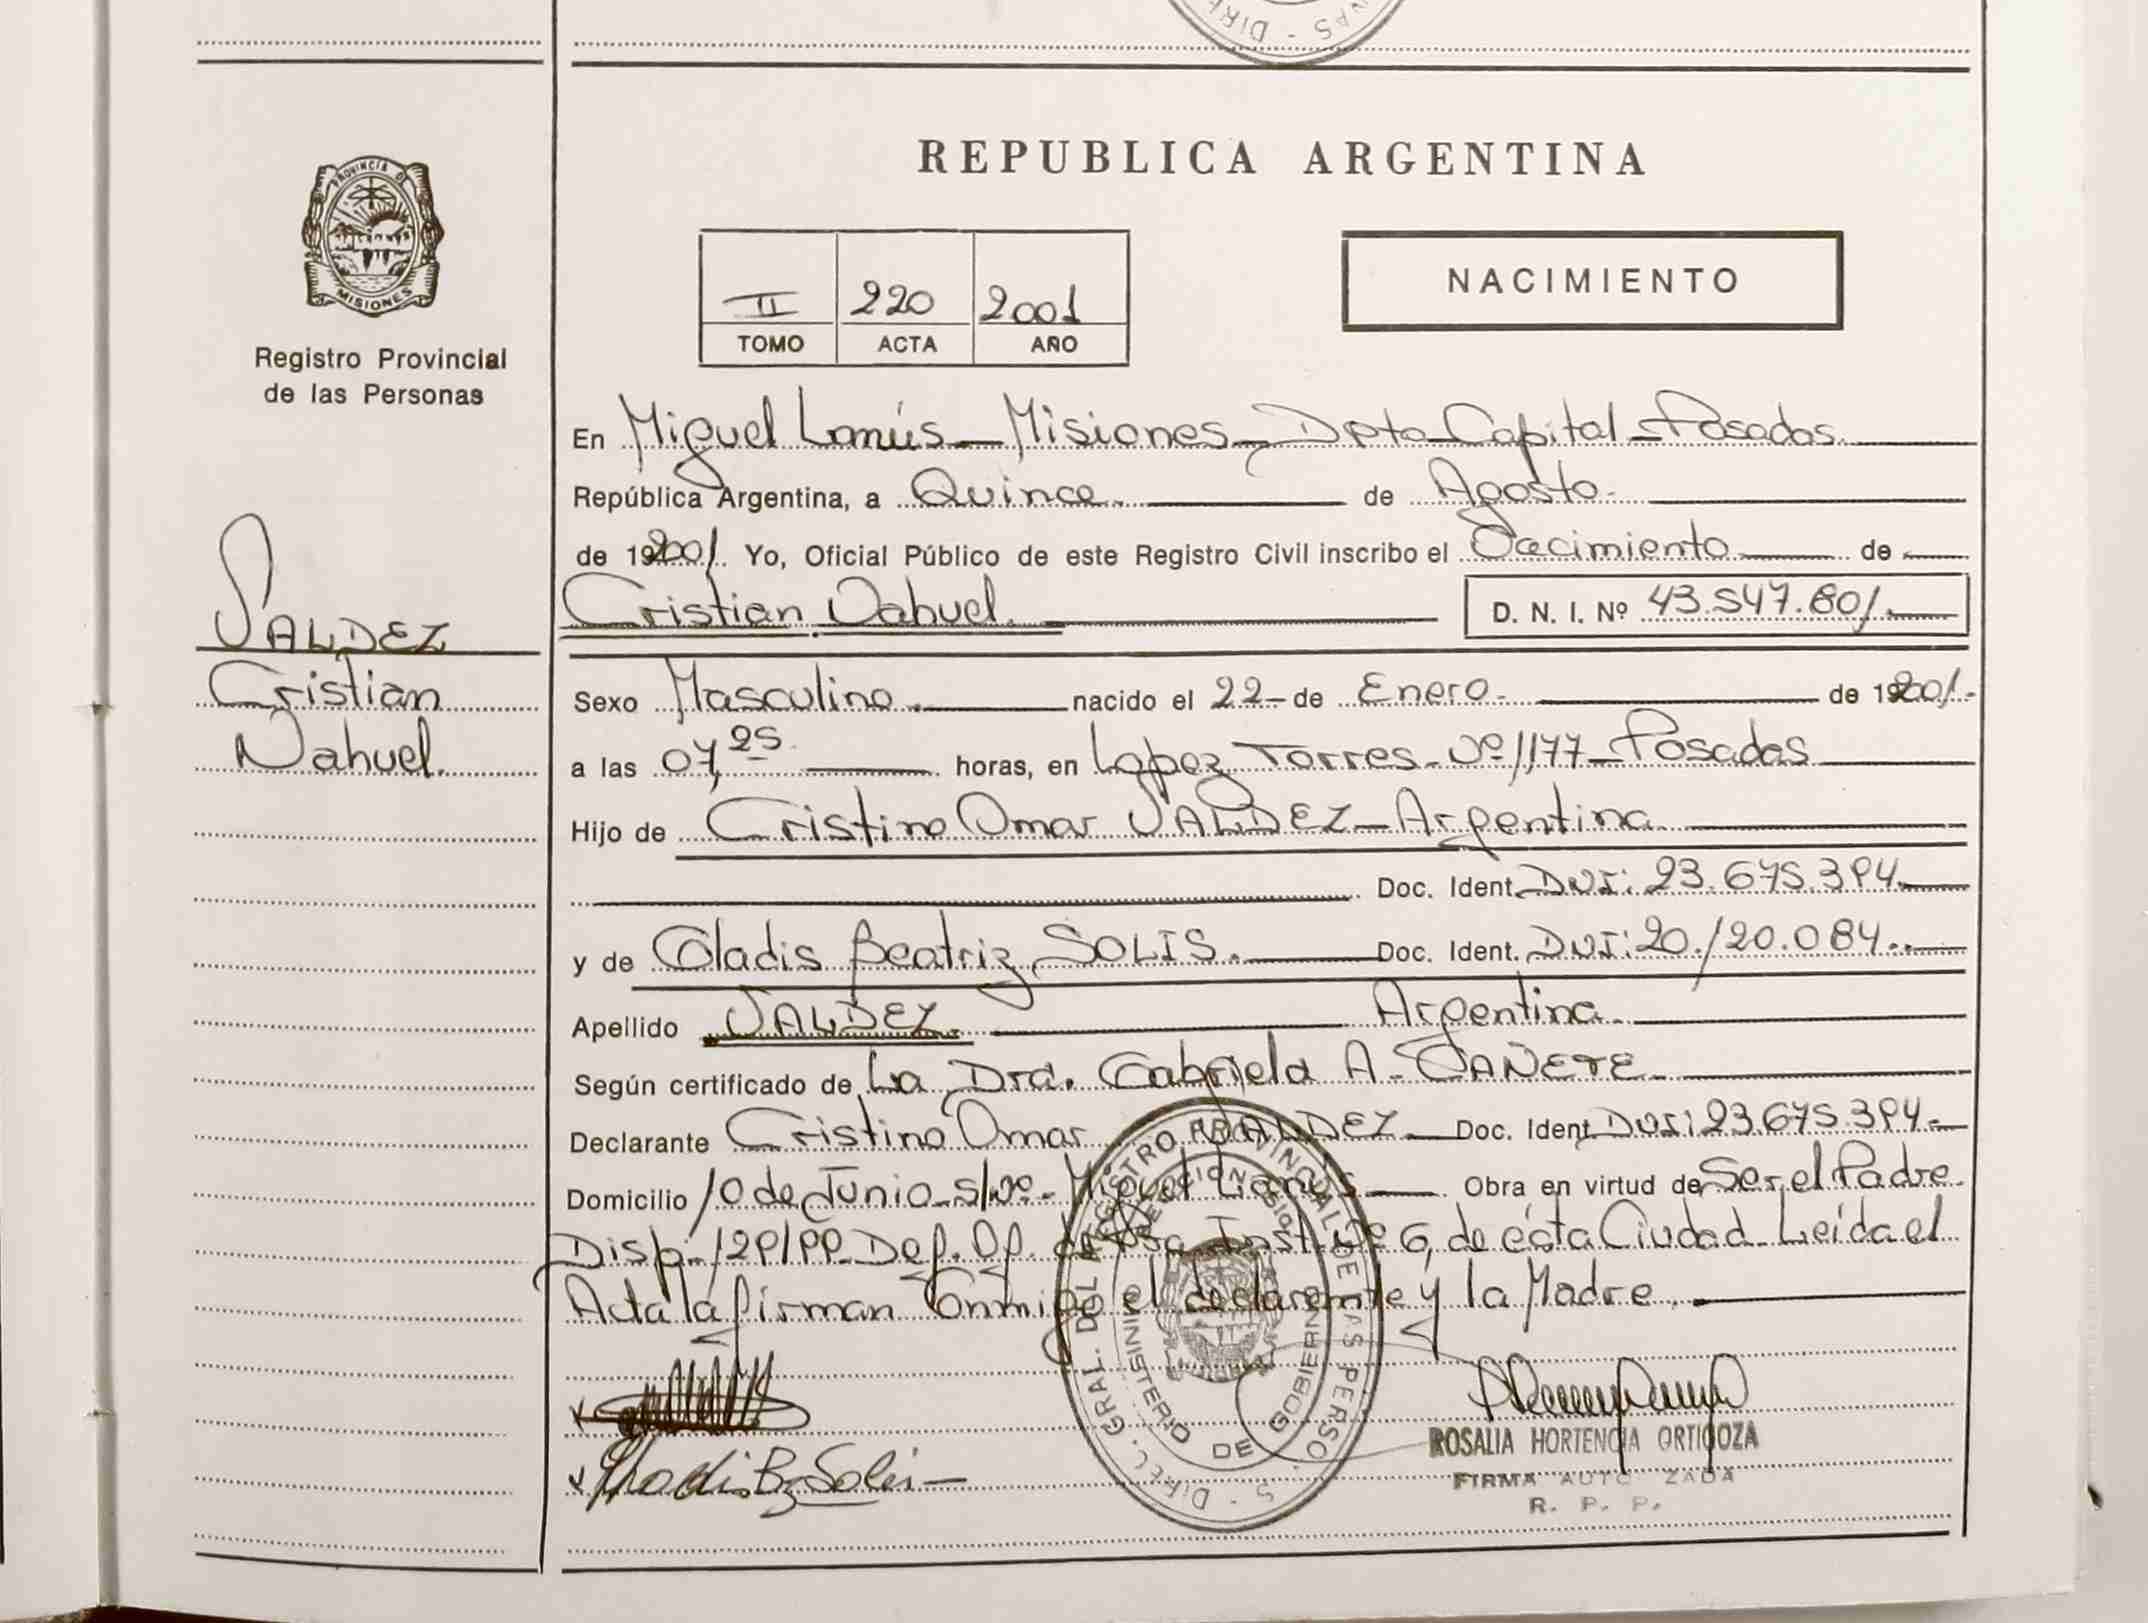 REPUBLICA ARGENTINA
PROVINCIA D
MISIONES
Registro Provincial
de las Personas
II 220 2001
TOMO ACTA AÑO
NACIMIENTO
En Miguel Lanús - Misiones - Dpto Capital - Posadas.
República Argentina, a Quince. de Agosto.
de 2001. Yo, Oficial Público de este Registro Civil inscribo el Nacimiento de
VALDEZ
Cristian
Nahuel.
Cristian Nahuel. D. N. I. Nº 43.547.801.
Sexo Masculino. nacido el 22 - de Enero. de 2001.
a las 07,25 horas, en Lopez Torres - Nº 1177 - Posadas
Hijo de Cristino Omar VALDEZ - Argentina
Doc. Ident. DNI: 23.675.394.
y de Gladis Beatriz SOLIS. Doc. Ident. DNI: 20.120.084.
Apellido VALDEZ. Argentina.
Según certificado de La Dra. Gabriela A. CAÑETE
Declarante Cristino Omar VALDEZ Doc. Ident DNI: 23.675.394.
Domicilio 10 de Junio - S/Nº - Miguel Lanús Obra en virtud de Ser el Padre
Disp. 129/99 Def. Of. de Inst. Nº 6, de ésta Ciudad. Leída el
Acta la firman Conmigo el declarante y la Madre.
DIREC. GRAL. DEL REGISTRO PROVINCIAL DE LAS PERSONAS
MINISTERIO DE GOBIERNO
ROSALIA HORTENCIA ORTIGOZA
FIRMA AUTO ZADA
R. P. P.